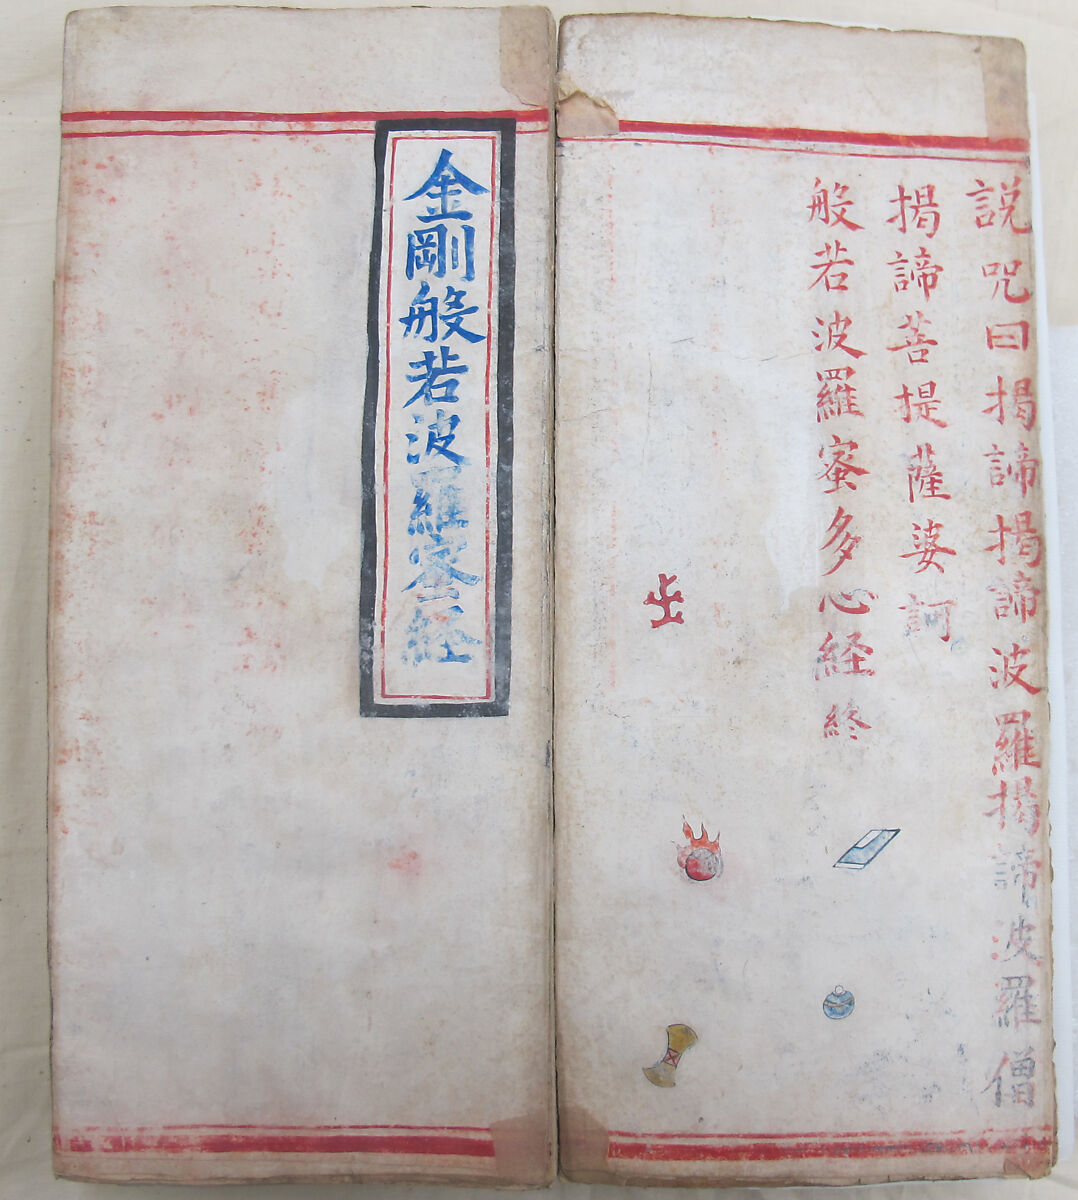 説呪曰揭諦揭諦波羅揭諦波羅僧
揭諦菩提薩婆訶
般若波羅蜜多心経終
金剛般若波羅蜜経